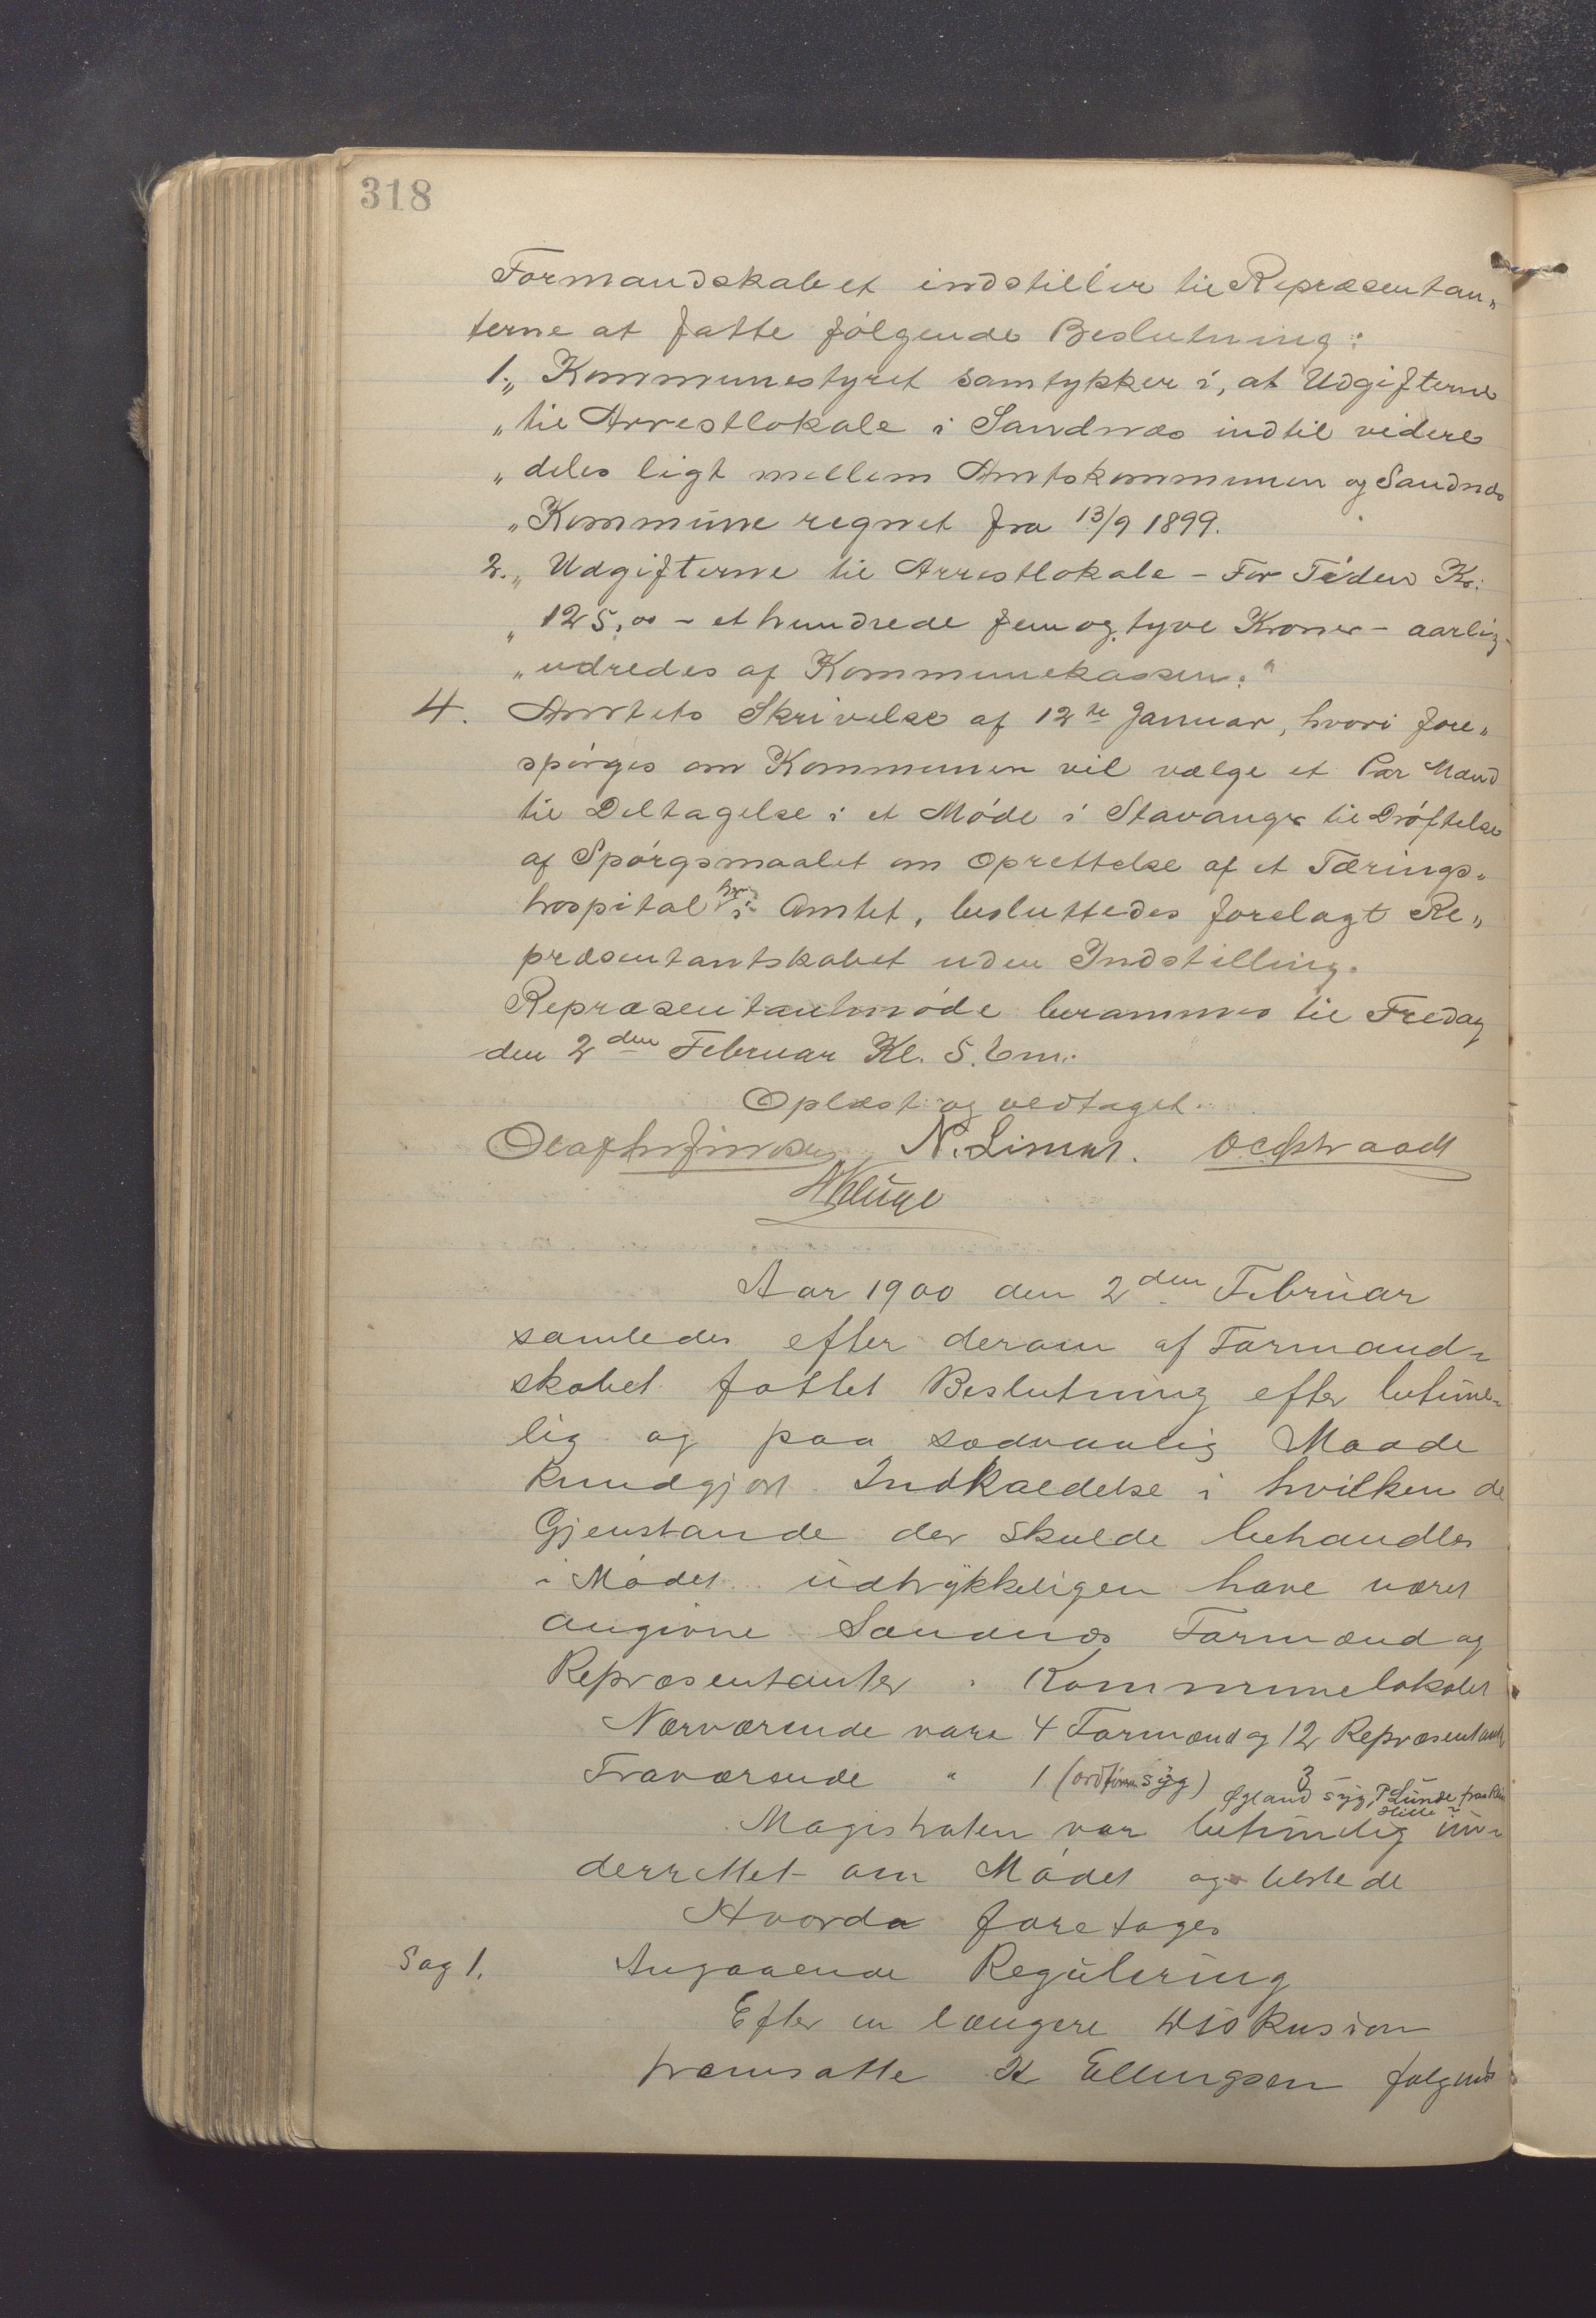 318
Formandskabet indstiller til Repræsentan„
terne at fatte følgende Beslutning:
1. „Kommunestyret samtykker i, at Udgifterne
„til Arrestlokale i Sandnæs indtil videre
„deles ligt mellem Amtskommunen og Sandnæs
„Kommune regnet fra 13/9 1899.
2. „Udgifterne til Arrestlokale – For Tiden Kr.
„125,00 – et hundrede fem og tyve Kroner – aarlig
„udredes af Kommunekassen."
4. Amtets Skrivelse af 12te Januar, hvori fore„
spørges om Kommunen vil vælge et Par Mænd
til Deltagelse i et Møde i Stavanger til Drøftelse
af Spørgsmaalet om Oprettelse af et Tærings„
hospital i Amtet, besluttedes forelagt Re„
præsentantskabet uden Indstilling.
Repræsentantmøde berammes til Fredag
den 2den Februar Kl. 5. Em.
Oplæst og vedtaget.
N. Limer.
A Kluge
Aar 1900 den 2den Februar
samledes efter derom af Formand-
skabet fattet Beslutning efter betime-
lig og paa sædvanlig Maade
kundgjort Indkaldelse i hvilken de
Gjenstande der skulde behandles
i Mødet udtrykkeligen have været
angivne Sandnæs Formænd og
Repræsentanter i Kommunelokalet
Nærværende vare 4 Formænd og 12 Repræsentanter
Fraværende " 1 (ordfører syg) 3 Øgland syg, P Lunde
Hille
Magistraten var betimelig un-
derrettet om Mødet og tilstede
Hvorda foretages
Sag 1. Angaaende Regulering
Efter en længere Diskusion
fremsatte K Ellingsen følgende